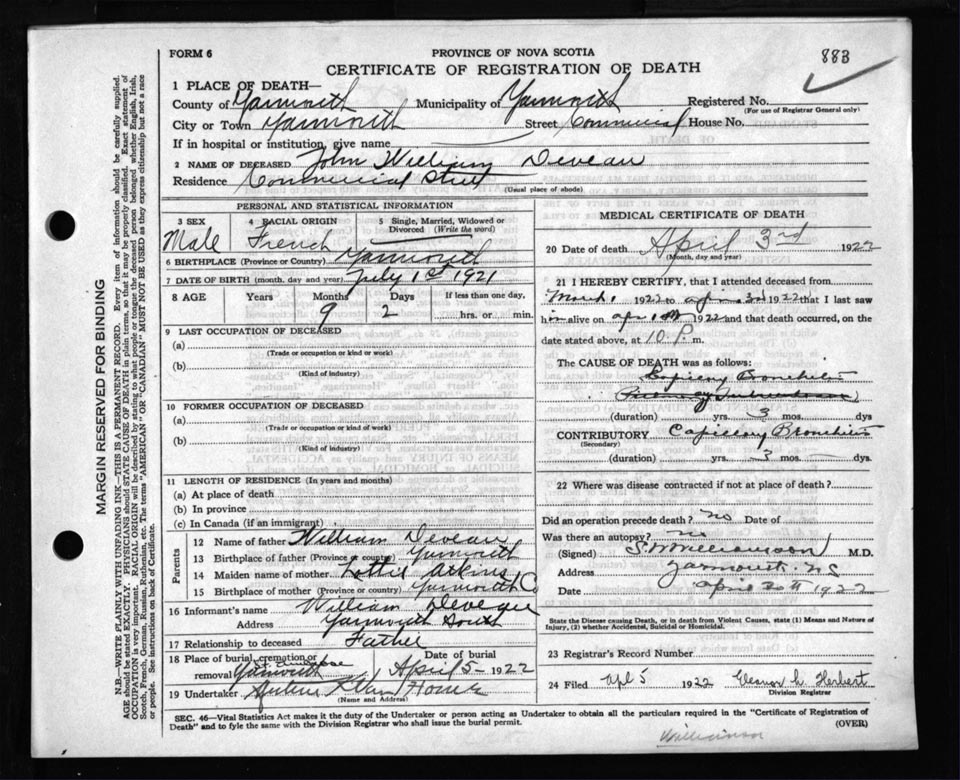 FORM 6
PROVINCE OF NOVA SCOTIA
883
CERTIFICATE OF REGISTRATION OF DEATH
1 PLACE OF DEATH—
County of Yarmouth Municipality of Yarmouth Registered No.
(For use of Registrar General only)
City or Town Yarmouth Street Commercial House No.
If in hospital or institution, give name
2 NAME OF DECEASED John William Deveau
Residence Commercial Street
(Usual place of abode)
PERSONAL AND STATISTICAL INFORMATION
3 SEX Male
4 RACIAL ORIGIN French
5 Single, Married, Widowed or Divorced (Write the word)
6 BIRTHPLACE (Province or Country) Yarmouth
7 DATE OF BIRTH (month, day and year) July 1st 1921
8 AGE Years Months 9 Days 2 If less than one day, hrs. or min.
9 LAST OCCUPATION OF DECEASED
(a)
(Trade or occupation or kind or work)
(b)
(Kind of industry)
10 FORMER OCCUPATION OF DECEASED
(a)
(Trade or occupation or kind of work)
(b)
(Kind of industry)
11 LENGTH OF RESIDENCE (In years and months)
(a) At place of death
(b) In province
(c) In Canada (if an immigrant)
Parents
12 Name of father William Deveau
13 Birthplace of father (Province or country) Yarmouth
14 Maiden name of mother Lottie Atkins
15 Birthplace of mother (Province or country) Yarmouth Co
16 Informant's name William Deveau
Address Yarmouth South
17 Relationship to deceased Father
18 Place of burial, cremation or removal Yarmouth
Date of burial April 5 - 1922
19 Undertaker
(Name and Address)
MEDICAL CERTIFICATE OF DEATH
20 Date of death April 3rd 1922
(Month, day and year)
21 I HEREBY CERTIFY, that I attended deceased from
March, 1922 to April 3rd 1922 that I last saw
him alive on Apr 1922 and that death occurred, on
date stated above, at 10 P. m.
The CAUSE OF DEATH was as follows:
Capillary Bronchitis
(duration) yrs. 3 mos. dys
CONTRIBUTORY Capillary Bronchitis
(Secondary)
(duration) yrs. 3 mos. dys.
22 Where was disease contracted if not at place of death?
Did an operation precede death? no Date of
Was there an autopsy? no
(Signed) S W Williamson M.D.
Address Yarmouth. N S
Date April 20th 1922
State the Disease Causing Death, or in death from Violent Causes, state (1) Means and Nature of
Injury, (2) whether Accidental, Suicidal or Homicidal.
23 Registrar's Record Number
24 Filed Apl 5 1922 Eleanor L. Herbert
Division Registrar
SEC. 46—Vital Statistics Act makes it the duty of the Undertaker or person acting as Undertaker to obtain all the particulars required in the "Certificate of Registration of
Death" and to fyle the same with the Division Registrar who shall issue the burial permit.
(OVER)
Williamson
MARGIN RESERVED FOR BINDING
N.B.—WRITE PLAINLY WITH UNFADING INK—THIS IS A PERMANENT RECORD. Every item of information should be carefully supplied.
AGE should be stated EXACTLY. PHYSICIANS should STATE CAUSE OF DEATH in plain terms, so that it may be properly classified. Exact statement of
OCCUPATION is very important. RACIAL ORIGIN will be described by stating to what people or tongue the deceased person belonged whether English, Irish,
Scotch, French, German, Russian, Ruthenian, etc. The terms "AMERICAN" or "CANADIAN" MUST NOT BE USED as they express citizenship but not a race
or people. See instructions on back of Certificate.